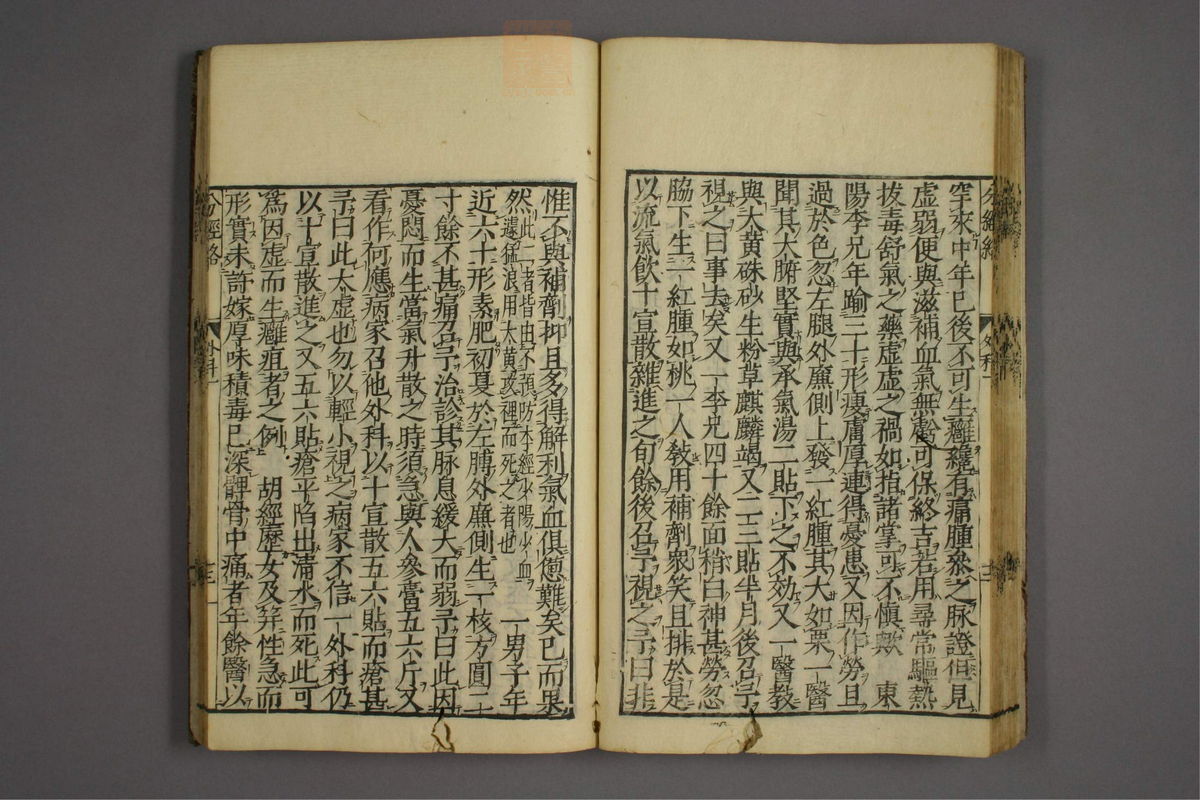 罕來中年已後不可生癰纔有痛腫參之脉證但見
虛弱便與滋補血氣無虧可保終吉若用尋常驅熱
拔毒舒氣之藥虛虛之禍如指諸掌可不愼歟　東
陽李兄年踰三十形瘦膚厚連得憂患又因作勞且
過於色忽左腿外廉側上發一紅腫其大如栗一醫
聞其大腑堅實與承氣湯二貼下之不効又一醫教
與大黄硃砂生粉草麒麟竭又二三貼半月後召予
視之曰事去矣又一李兄四十餘面稍白神甚勞忽
脇下生一紅腫如桃一人敎用補劑衆笑且排於是
以流氣飮十宣散雜進之旬餘後召予視之予曰非
分經絡
外科一
惟不與補劑抑且多得解利氣血俱憊難矣已而果
然此二者皆由不預防本經少陽少血
遽猛浪用大黄攻裡而死之者也　一男子年
近六十形素肥初夏於左膊外廉側生一核方圓二
寸餘不甚痛召予治診其脉息緩大而弱予曰此因
憂悶而生當氣升散之時須急與人參膏五六斤又
看作何應病家召他外科以十宣散五六貼而瘡甚
予曰此大虛也勿以輕小視之病家不信一外科仍
以十宣散進之又五六貼瘡平陷出淸水而死此可
爲因虛而生癰疽者之例　胡經歷女及筓性急而
形實未許嫁厚味積毒已深髀骨中痛者年餘醫以
分經絡
外科一